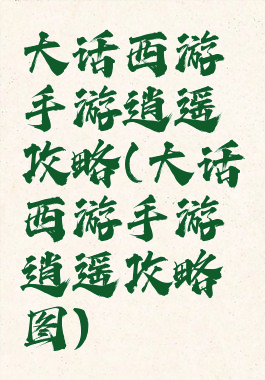 大话西游
手游逍遥
攻略(大话
西游手游
逍遥攻略
图)